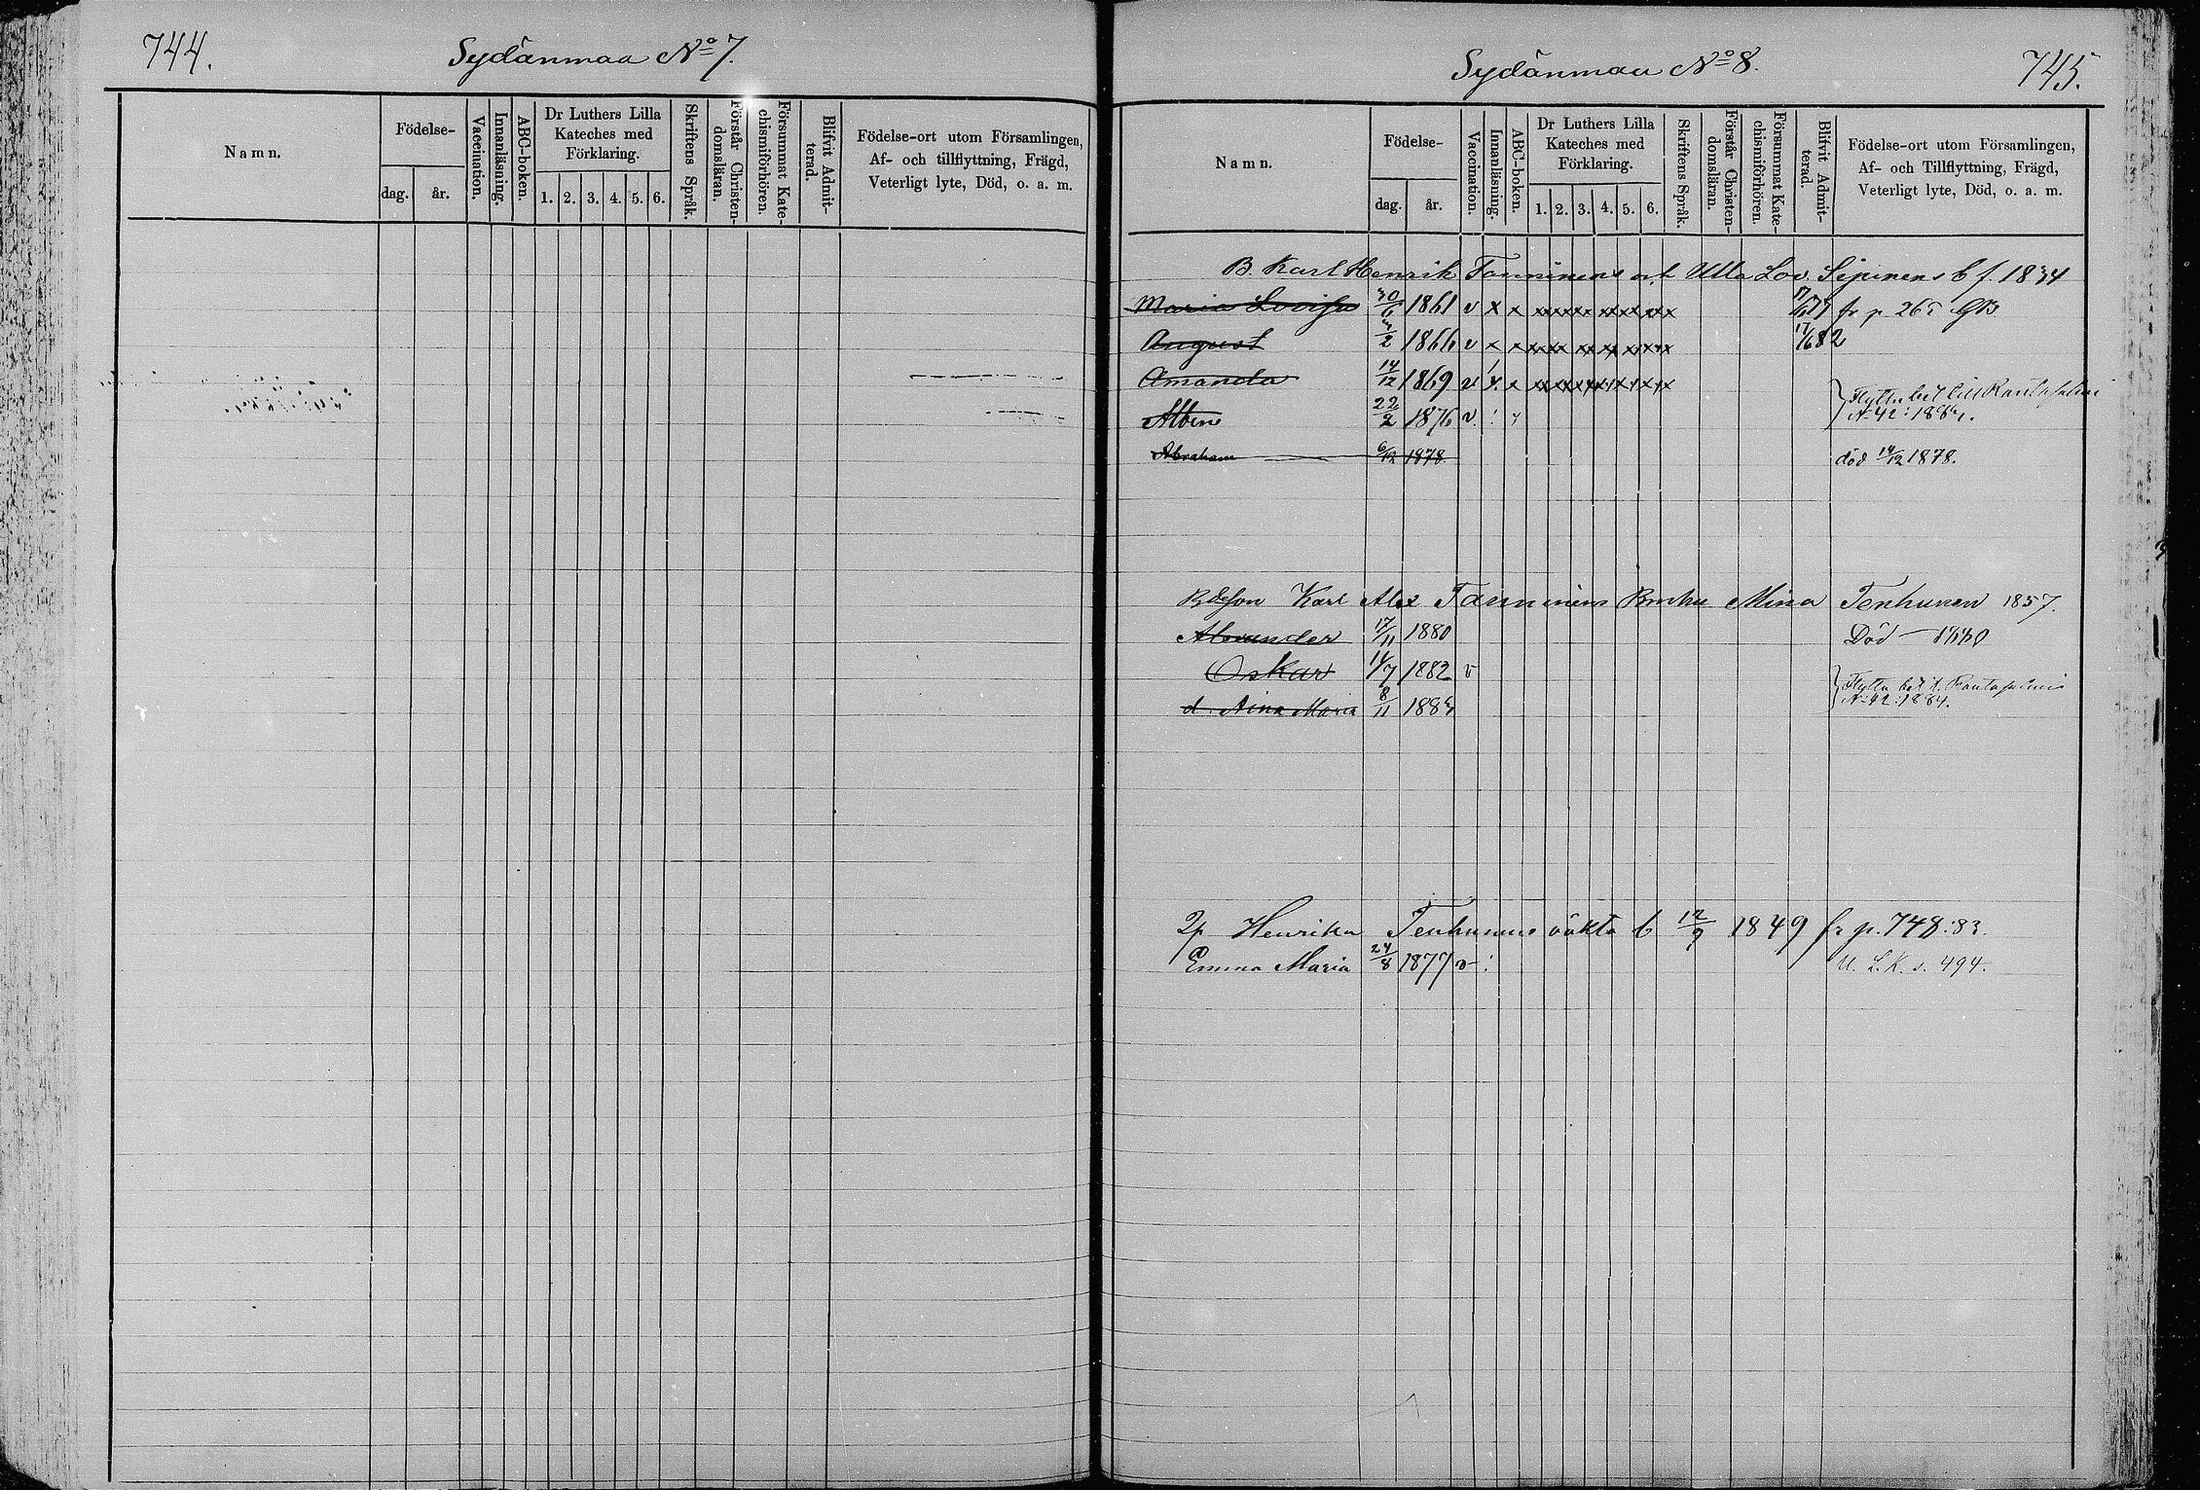 744.
Sydänmaa No 7.
Namn.
Födelse-
dag.
år.
Vaccination.
Innanläsning.
ABC-boken.
Dr Luthers Lilla
Kateches med
Förklaring.
1. 2. 3. 4. 5. 6.
Skriftens Språk.
Förstår Christen-
domsläran.
Försummat Kate-
chismiförhören.
Blifvit Admit-
terad.
Födelse-ort utom Församlingen,
Af- och tillflyttning, Frägd,
Veterligt lyte, Död, o. a. m.
Sydänmaa No 8.
745.
Namn.
Födelse-
dag.
år.
Vaccination.
Innanläsning.
ABC-boken.
Dr Luthers Lilla
Kateches med
Förklaring.
1. 2. 3. 4. 5. 6.
Skriftens Språk.
Förstår Christen-
domsläran.
Försummat Kate-
chismiförhören.
Blifvit Admit-
terad.
Födelse-ort utom Församlingen,
Af- och Tillflyttning, Frägd,
Veterligt lyte, Död, o. a. m.
B. Karl Henrik Tanninens o. h. Ulla Lov. b f. 1834
Maria Lovisa 30/6 1861 v x x 77 fr p 265
August 2 1866 v x x 17/6 82
Amanda 14/12 1869 v x x
Albin 22/2 1876 v
Flytta bet till Rantasalmi
N 42: 1884.
Abraham 6/12 1878 död 14/12 1878.
Karl Alex Tanninens Mina Tenhunen 1857.
Alexander 17/11 1880 Död — 1880
Oskar 14/7 1882 v
d. Aina Maria 8/11 1883
Flytta bet t. Rantasalmi
N 42: 1884.
Henrika Tenhunens oäkta b 12/9 1849 fr p. 748:83.
Emma Maria 24/8 1877 v U. L.K. s. 494.